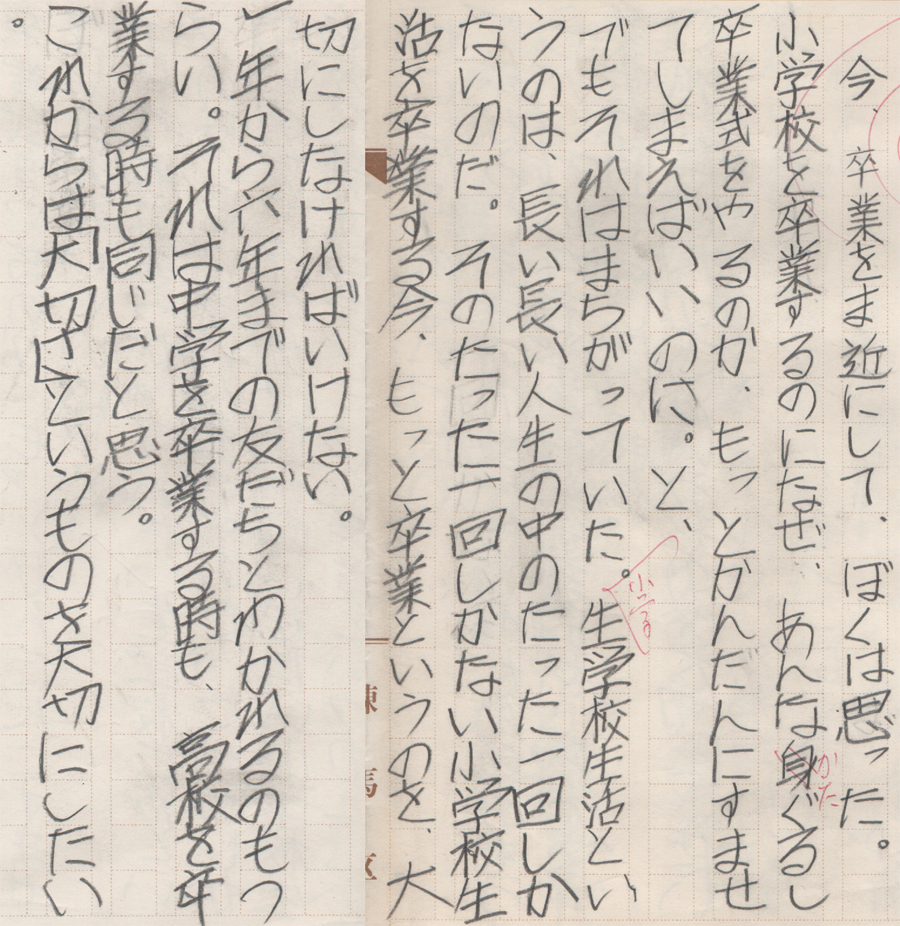 今、卒業をま近にして、ぼくは思った。
小学校を卒業するのになぜ、あんな身ぐるし
かた
卒業式をやるのか、もっとかんだんにすませ
てしまえばいいのに。と、
でもそれはまちがっていた。生学校生活とい
小学
うのは、長い長い人生の中のたった一回しか
ないのだ。そのたった一回しかない小学校生
活を卒業する今、もっと卒業というのを、大
練馬区
切にしなければいけない。
一年から六年までの友だちとわかれるのもつ
らい。それは中学を卒業する時も、高校を卒
業する時も同じだと思う。
これからは大切さというものを大切にしたい
。